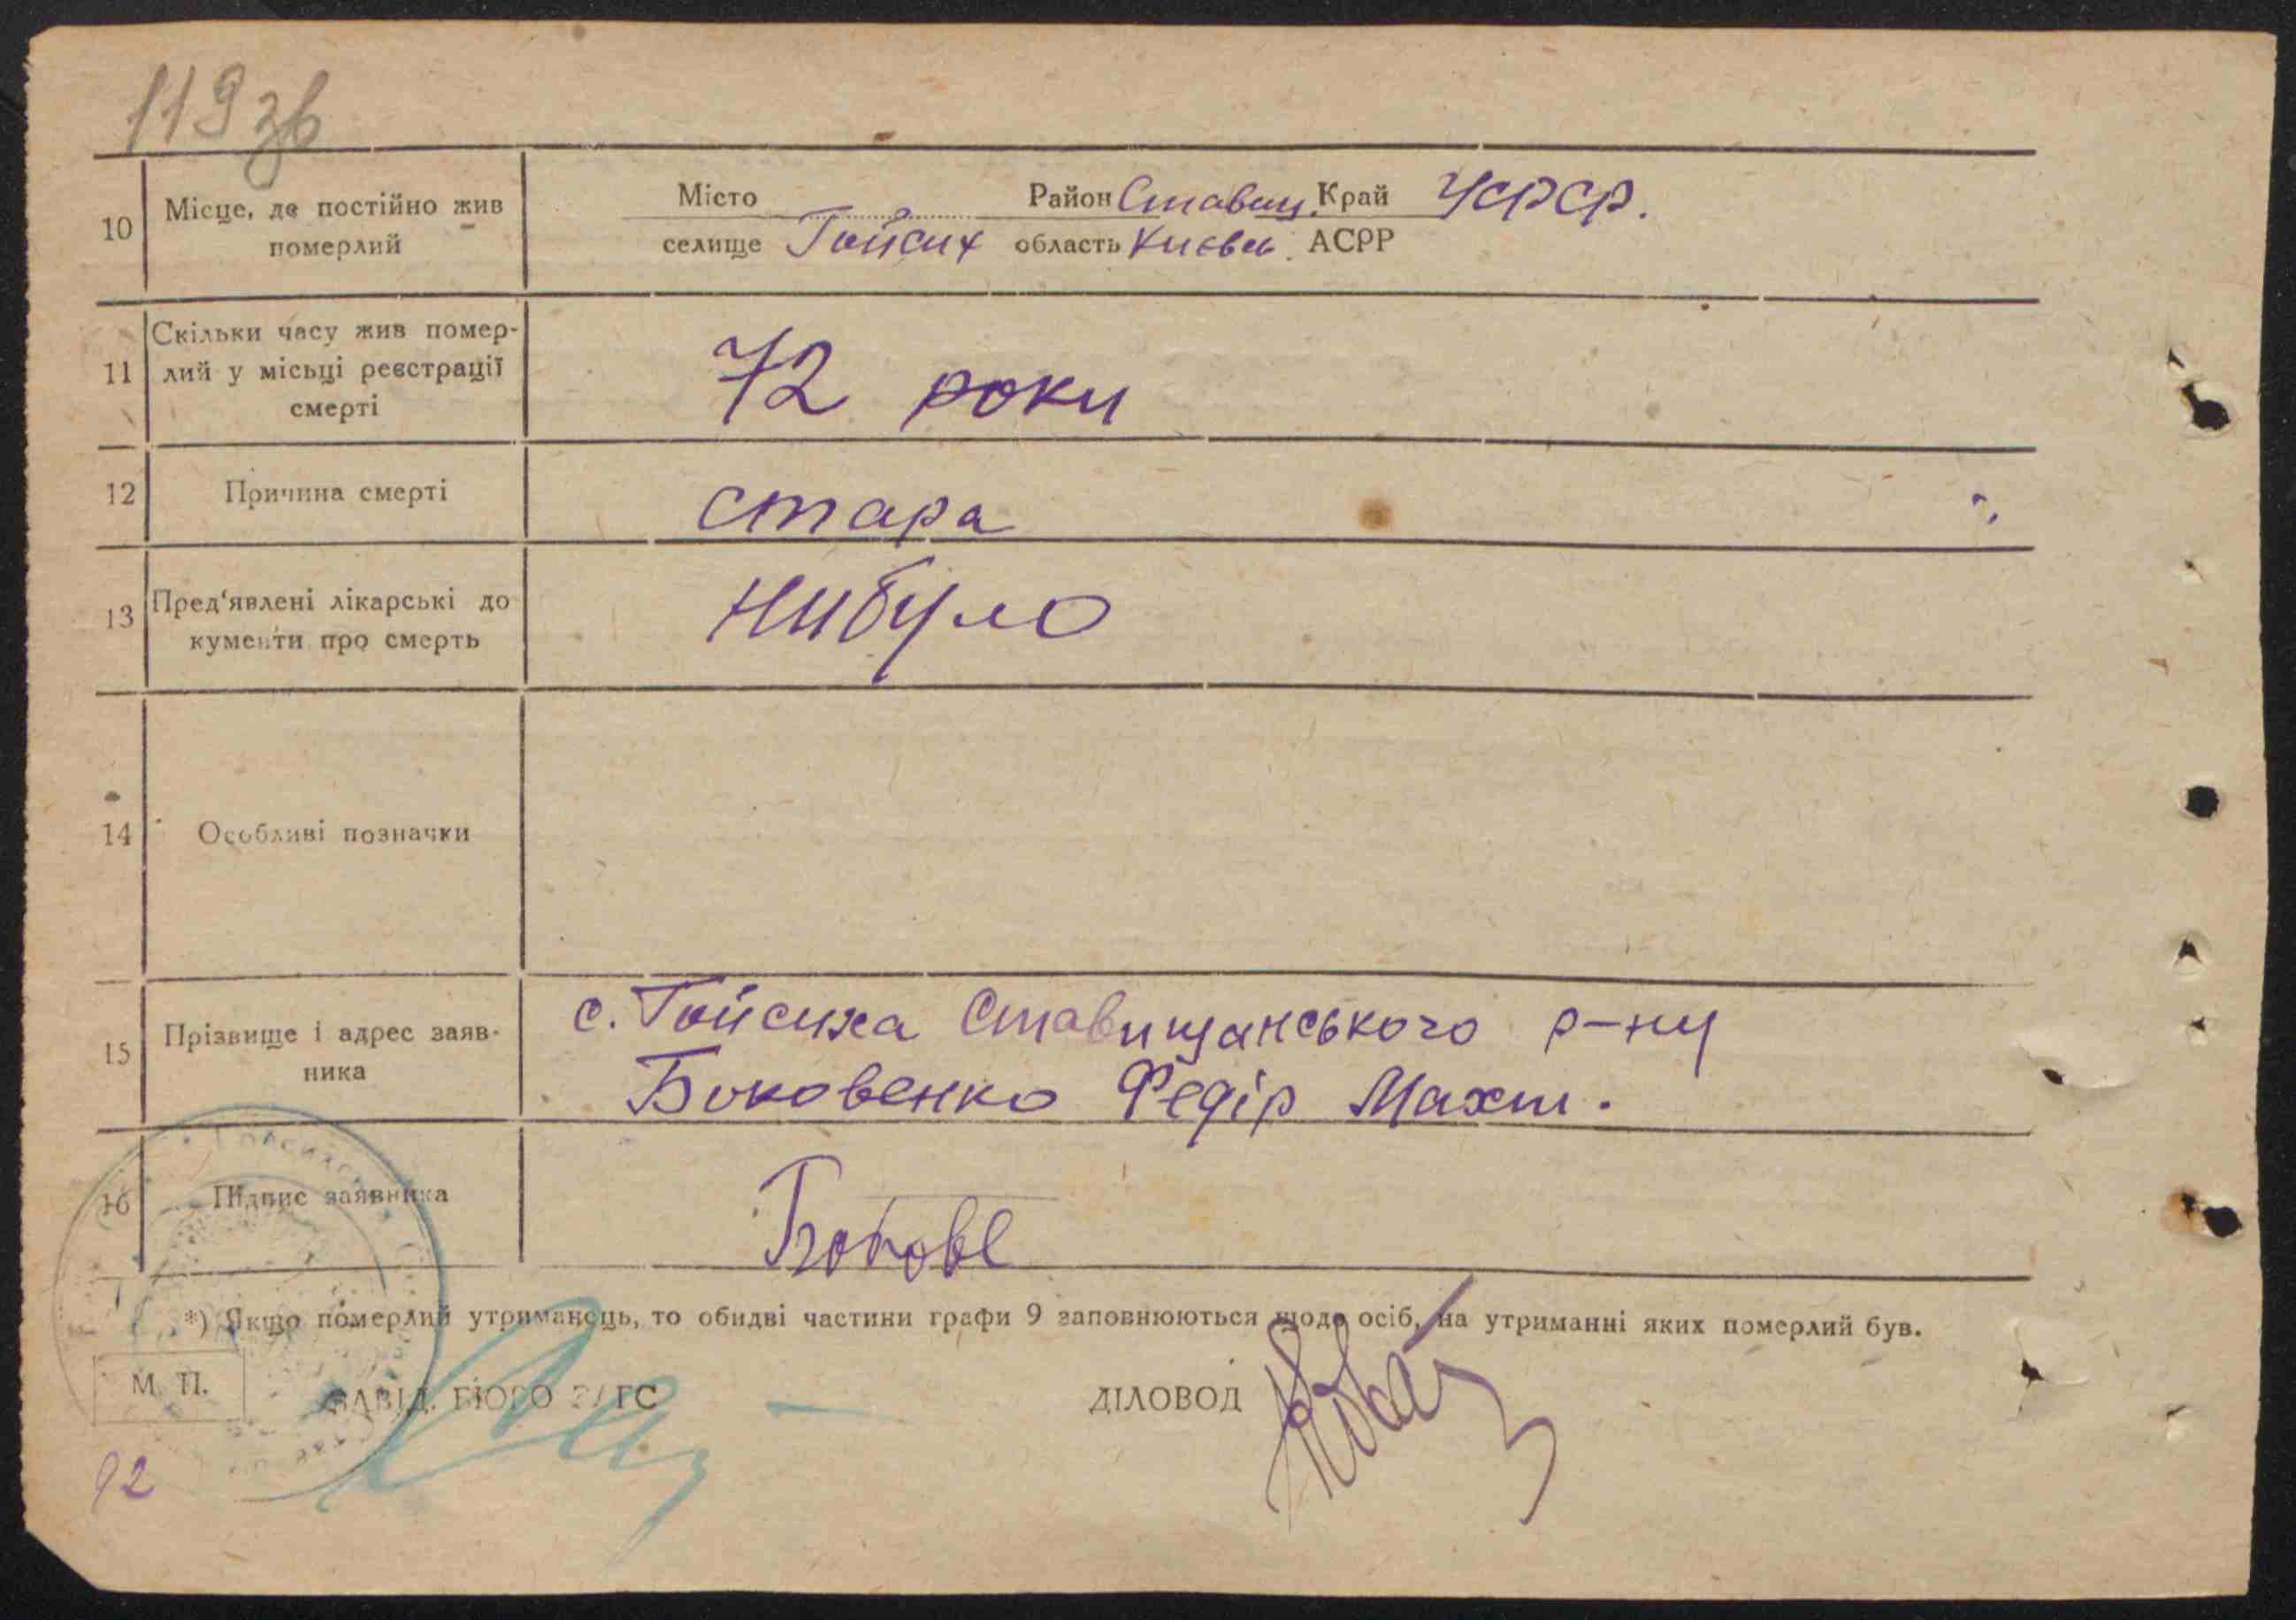 119 зв
10 Місце, де постійно жив померлий
Місто Район Ставищ. Край УСРСР.
селище Гойсих область Києвсь. АСРР
11 Скільки часу жив помер-
лий у місьці реєстрації
смерті
72 роки
12 Причина смерті стара
13 Пред'явлені лікарські до
кументи про смерть
нибуло
14 Особливі позначки
15 Прізвище і адрес заяв-
ника
с. Гойсиха Ставищанського р-ну
Боковенко Федір Махт.
16 Підпис заявника
*) Якщо померлий утриманець, то обидві частини графи 9 заповнюються щодо осіб, на утриманні яких померлий був.
М. П.
ЗАВІД. БЮРО ЗАГС ДІЛОВОД
92